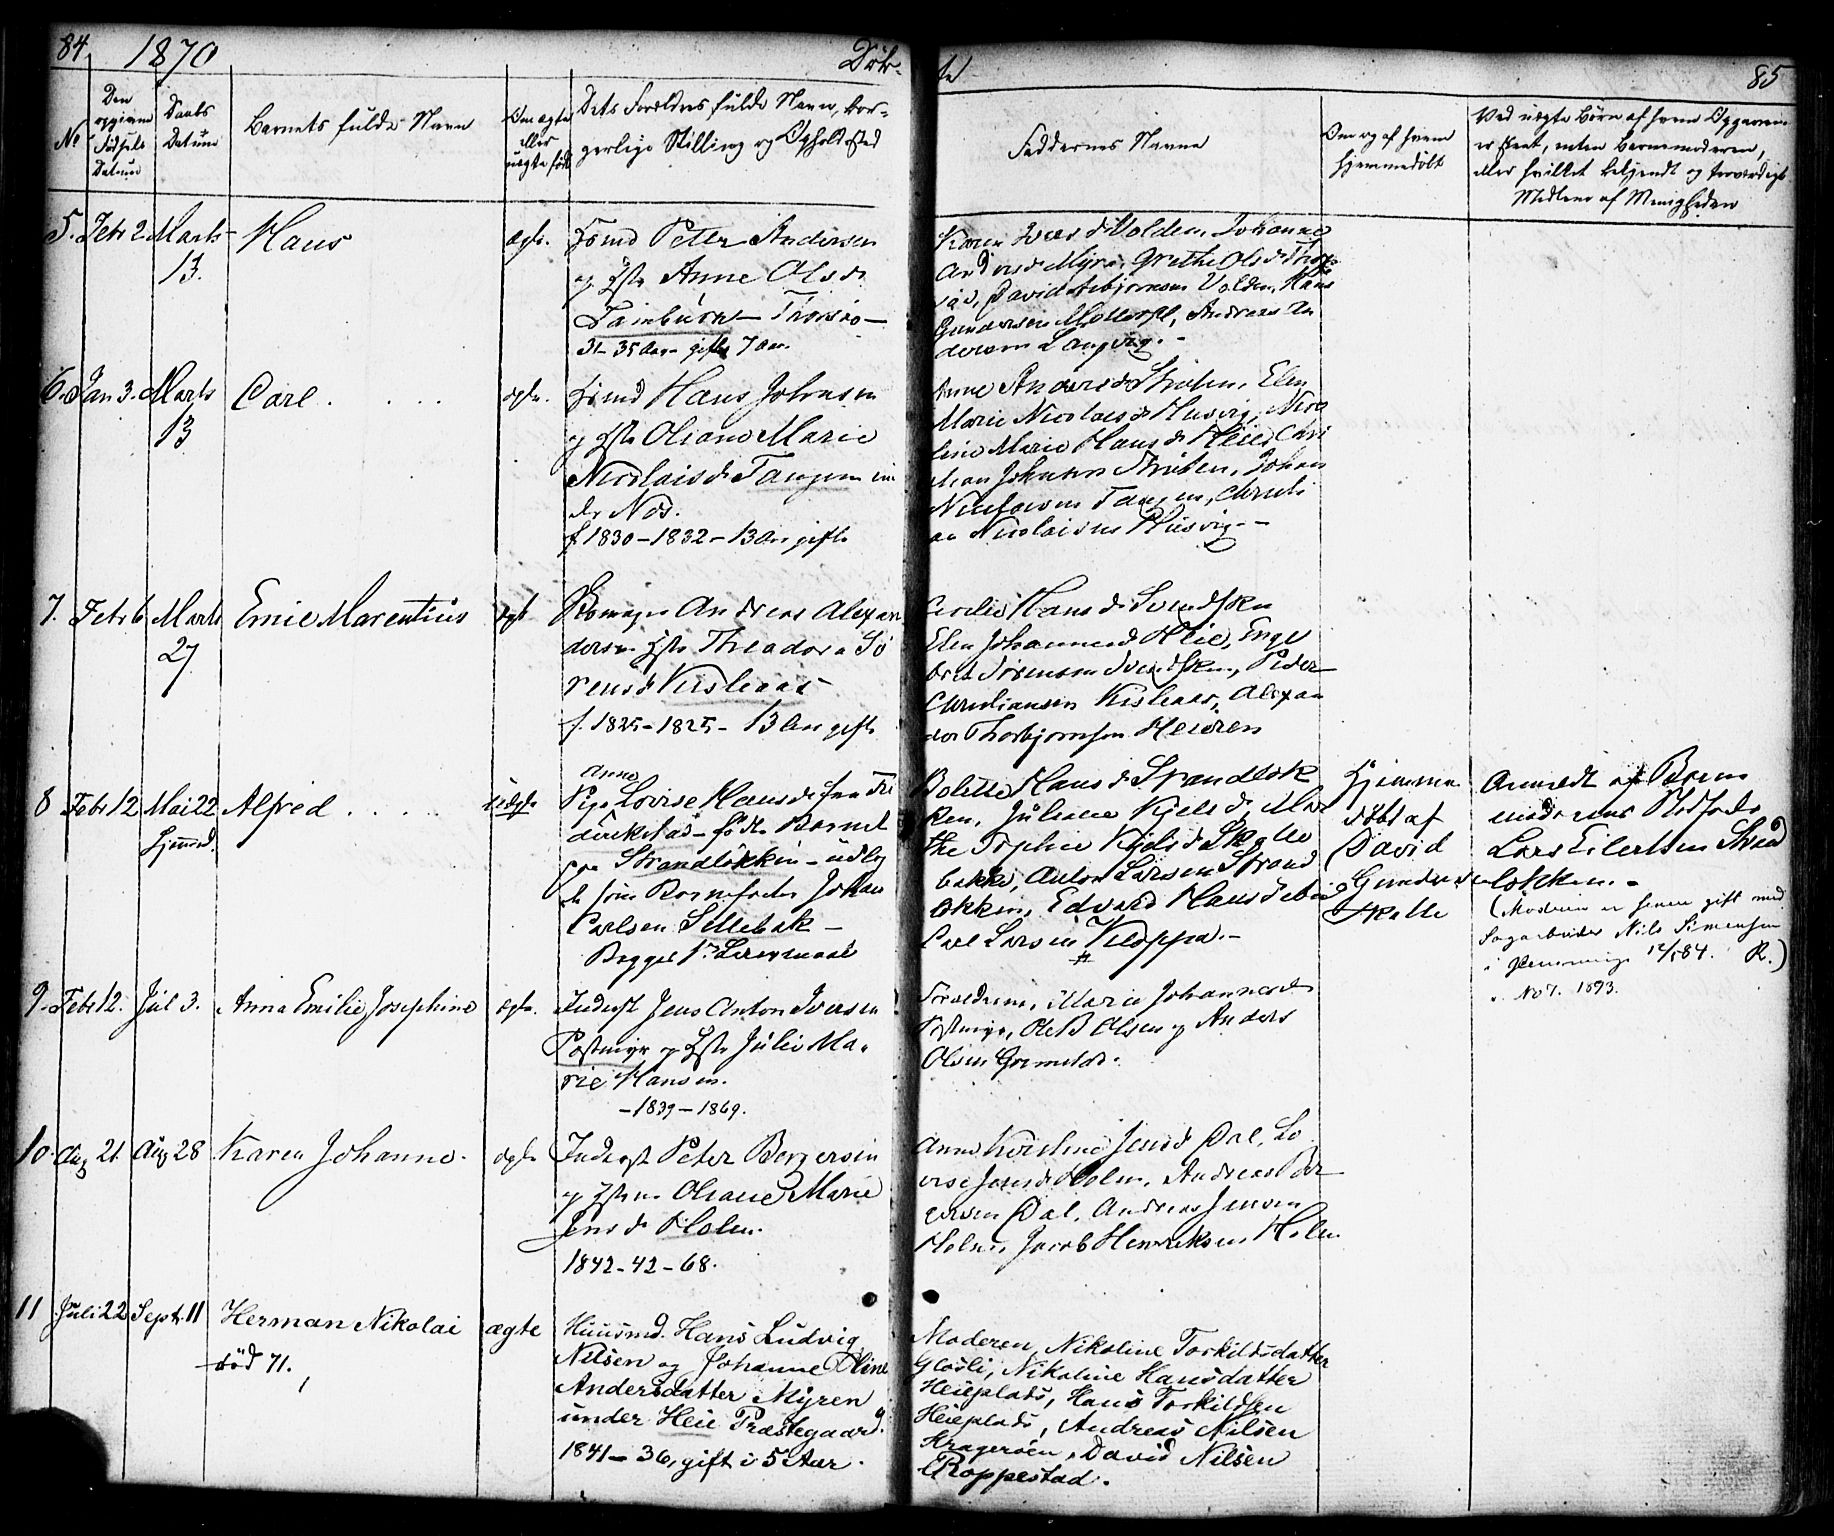 84 1870 Döb-
No
Den opgivne Fødsels Datum
Daabs Datum
Barnets fulde Navn
Om ægte eller uægte født
Dets Forældres fulde Navn, bor-
gerlige Stilling og Opholdssted
te 85
Faddernes Navne
Om og af hvem
hjemmedøbt
Ved uægte Børn af hvem Opgaven
er skeet, enten Barnemoderen,
eller hvilket bekjendt og troværdigt
Medlem af Menigheden
5. Febr 2 Marts 13. Hans ægte.
Peter Andersen
og Anne Olsdr
31-35 Aar- gift 7 Aar.
Karen Volden, Johanne
Andersdr Myra, Grethe Olsdr
David Asbjørnsen Volden, Hans
Gundersen Andreas An
dersen Langvig.-
6. Jan 3. Marts 13 Carl . . . . ægte.
Hans Johnsen
og Oliane Marie
Nicolaisdr Tangen un
der Næs.
f 1830-1832-13 Aar gift
Anne Andersdr Elen
Marie Nicolaisdr Husvig, Nico
line Marie Hansdr Heie, Chri
stian Johansen Johan
Tangen, Christi
an Nicolaisen Husvig.-
7. Febr 6 Marts 27 Emil Marentius ægte
Skomager Andreas Alexan
dersen Theodora Sö
rensdr
f. 1825-1825- 13 Aar gift
Cecilie Hansdr
Elen Johannesdr Heie, Enge
bret Sørensen Peder
Christiansen Alexan
der Thorbjørnsen Heieren
8 Febr 12 Mai 22 Hjemmed. Alfred . . . . uægte
Anne
Pige Lovise Hansdr fra
født Barnet
paa Strandløkken - udlag
t som Barnefader Johan
Carlsen Sellebak -
Begges 1ste Leiermaal
Bolette Hansdr Strandløk
ken, Juliane Kjelsdr, Mar
the Sophie Kjelsdr Skolle
bakke, Anton Larsen Strand
løkken, Edvard Hans
Carl Larsen Kloppa.-
Hjemme
døbt af
David
Gunders
Skolle
Anmeldt af Barne
moderens Stedfader
Lars Eilertsen Strand
løkken.-
(Moderen er senere gift med
Sagarbeider Nils Simensen
i 12/5 84. R.)
No 7. 1893.
9. Febr 12. Jul 3. Anna Emilie Josephine ægte.
Inderst Jens Anton Iversen
Postmyr og Julie Ma-
rie Hansen.
-1839-1869.
Forældrene, Marie Johannesdr
Postmyr, Ole B Olsen og Anders
Olsen Grimstad.
10. Aug 21 Aug 28 Karen Johanne. ægte
Inderst Peter Bergersen
og Oliane Marie
Jensdr Holm.
1842-42-68.
Anne Kirstine Jensdr Dal, Lo
vise Jensdr Holm, Andreas Ber
gersen Dal, Andreas Jensen
Holm, Jacob Henriksen Holm
11 Juli 22 Sept. 11 Herman Nikolai ægte
död 71.
Huusmd. Hans Ludvig
Nilsen og Johanne Oline
Andersdatter Myren
under Heie Præstegaard.
1841-36, gift i 5 Aar.
Moderen, Nikoline Torkildsdatter
Glosli, Nikoline Hansdatter
Heieplads, Hans Torkildsen
Heieplads, Andreas Nilsen
Kragerøen, David Nilsen
Roppestad.